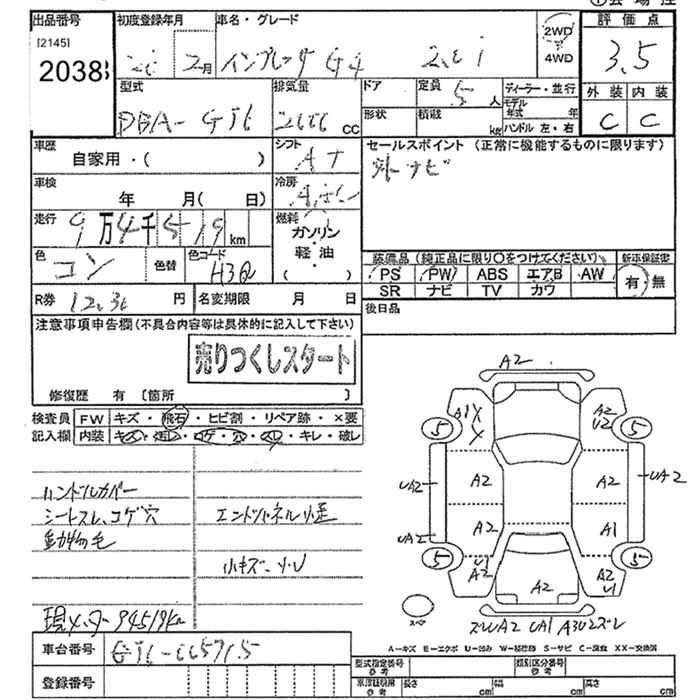 出品番号
[2145]
2038
初度登録年月
2月
車名・グレード
インプレッサ G4 2.0i
2WD
4WD
評価点
3.5
外装 内装
C C
型式
DBA-GJ6
排気量
2000 cc
ドア
形状
定員
5人
積載
kg
ディーラー・並行
モデル年式 年
ハンドル 左・右
車歴
自家用・( )
シフト
AT
セールスポイント (正常に機能するものに限ります)
外ナビ
車検
年 月( 日)
冷房
走行
9万4千519km
燃料
ガソリン
軽油
( )
色
コン
色替
色コード
H3Q
装備品 (純正品に限り〇をつけてください)
新車保証書
PS PW ABS エアB AW
SR ナビ TV カワ
有・無
R券
円
名変期限 月 日
後日品
注意事項申告欄(不具合内容等は具体的に記入して下さい)
売りつくしスタート
修復歴 有 [箇所 ]
検査員
記入欄
FW キズ・飛石・ヒビ割・リペア跡・×要
内装 キズ・汚レ・コゲ・穴・スレ・キレ・破レ
ハンドルカバー
シートスレ、コゲ穴
動物毛
エンドパネル歪
小キズ・小U
現メーター 94519km
車台番号
GJ6-005715
登録番号
A2
A1 X
X
A2
U2
5 5
UA2 A2 A2 UA2
UA2 A2 A1
5 5
U1
A2
A2
A2
U1
スペア
ズレUA2 UA1 A3U2ズレ
A-キズ E-エクボ U-凹み W-補修跡 S-サビ C-腐食 XX-交換済
型式指定番号
参考
類別区分番号
参考
車庫証明用
参考
長さ cm 幅 cm 高さ cm